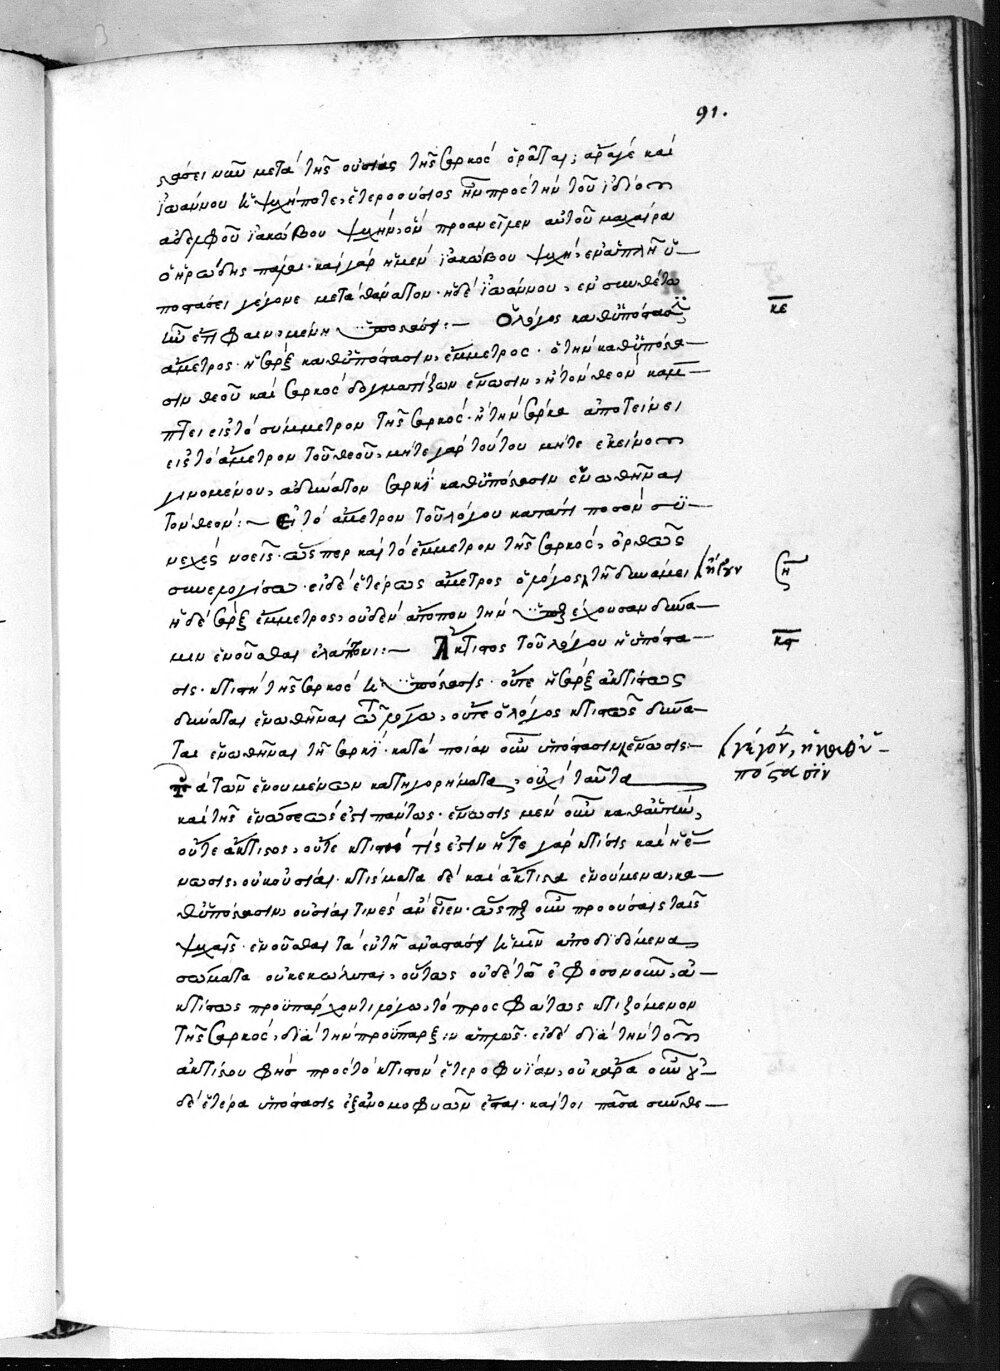 91.
στάσει νῦν μετὰ τῆς οὐσίας τῆς σαρκὸς ὁρᾶται; ἄρα γε καὶ
Ἰωάννου ἡ ψυχή ποτε, ἑτεροούσιος ἦν πρὸς τὴν τοῦ ἰδίου
ἀδελφοῦ Ἰακώβου ψυχήν, ὃν προανεῖλεν αὐτοῦ μαχαίρα
ὁ Ἡρώδης πάλαι· καὶ γὰρ ἡ μὲν Ἰακώβου ψυχή, ἐν ἁπλῇ ὑ-
ποστάσει γέγονε μετὰ θάνατον· ἡ δὲ Ἰωάννου, ἐν συνθέτῳ
ἦν ἔτι φαινομένη ὑποστάσει :— Ὁ λόγος καθ' ὑπόστασιν
κε
ἄμετρος· ἡ σὰρξ καθ' ὑπόστασιν, ἔμμετρος· ὁ τὴν καθ' ὑπόστα-
σιν θεοῦ καὶ σαρκὸς δογματίζων ἕνωσιν, ἢ τὸν θεὸν κάμ-
πτει εἰς τὸ σύμμετρον τῆς σαρκός· ἢ τὴν σάρκα ἀποτείνει
εἰς τὸ ἄμετρον τοῦ θεοῦ, μήτε γὰρ τούτου μήτε ἐκείνου
γινομένου, ἀδύνατον σαρκὶ καθ' ὑπόστασιν ἑνωθῆναι
τὸν θεόν :— Εἰ τὸ ἄμετρον τοῦ λόγου κατά τι ποσὸν συ-
νεχὲς νοεῖς· ὥσπερ καὶ τὸ ἔμμετρον τῆς σαρκός, ὀρθῶς
συνελογίσω· εἰ δὲ ἑτέρως ἄμετρος ὁ λόγος τῇ δυνάμει
ἤγουν
ἡ δὲ σὰρξ ἔμμετρος, οὐδὲν ἄτοπον τὴν ἔχουσαν δύνα-
μιν ἑνοῦσθαι ἐλάττονι :— Ἄκτιστος τοῦ λόγου ἡ ὑπόστα-
κϛ
σις· κτιστὴ τῆς σαρκὸς ἡ ὑπόστασις· οὔτε ἡ σὰρξ ἀκτίστως
δύναται ἑνωθῆναι τῷ λόγῳ, οὔτε ὁ λόγος κτιστῶς δύνα-
ται ἑνωθῆναι τῇ σαρκί· κατὰ ποίαν οὖν ὑπόστασιν ἕνωσις:—
γέγονεν, ἡ καθ' ὑ-
πόστασιν
Τὰ τῶν ἑνουμένων κατηγορήματα, οὐχὶ ταῦτα
καὶ τῆς ἑνώσεως ἐστὶ πάντως· ἕνωσις μὲν οὖν καθ' αὑτήν,
οὔτε ἄκτιστος, οὔτε κτιστή τίς ἐστιν ἥ τε γὰρ κτίσις καὶ ἡ ἕ-
νωσις, οὐκ οὐσίαι· κτίσματα δὲ καὶ ἄκτιστα ἑνούμενα, κα-
θ' ὑπόστασιν, οὐσίαι τινὲς ἂν εἶεν· ὥσπερ οὖν προούσαις ταῖς
ψυχαῖς· ἑνοῦσθαι τὰ ἐν τῇ ἀναστάσει ἡμῖν ἀποδιδόμενα
σώματα οὐ κεκώλυται, οὕτως οὐδὲ τῷ ἐφ' ὅσον οὖν, ἀ-
κτίστως προϋπάρχοντι λόγῳ, τὸ προσφάτως κτιζόμενον
τῆς σαρκός, διὰ τὴν προΰπαρξιν ἁπλῶς· εἰ δὲ διὰ τὴν τοῦ
ἀκτίστου φησὶ πρὸς τὸ κτιστὸν ἑτεροφυΐαν, οὐκ ἄρα οὖν οὐ-
δ' ἑτέρα ὑπόστασις ἐξ ἀνομοφυῶν ἔσται· καίτοι πᾶσα σύνθε-